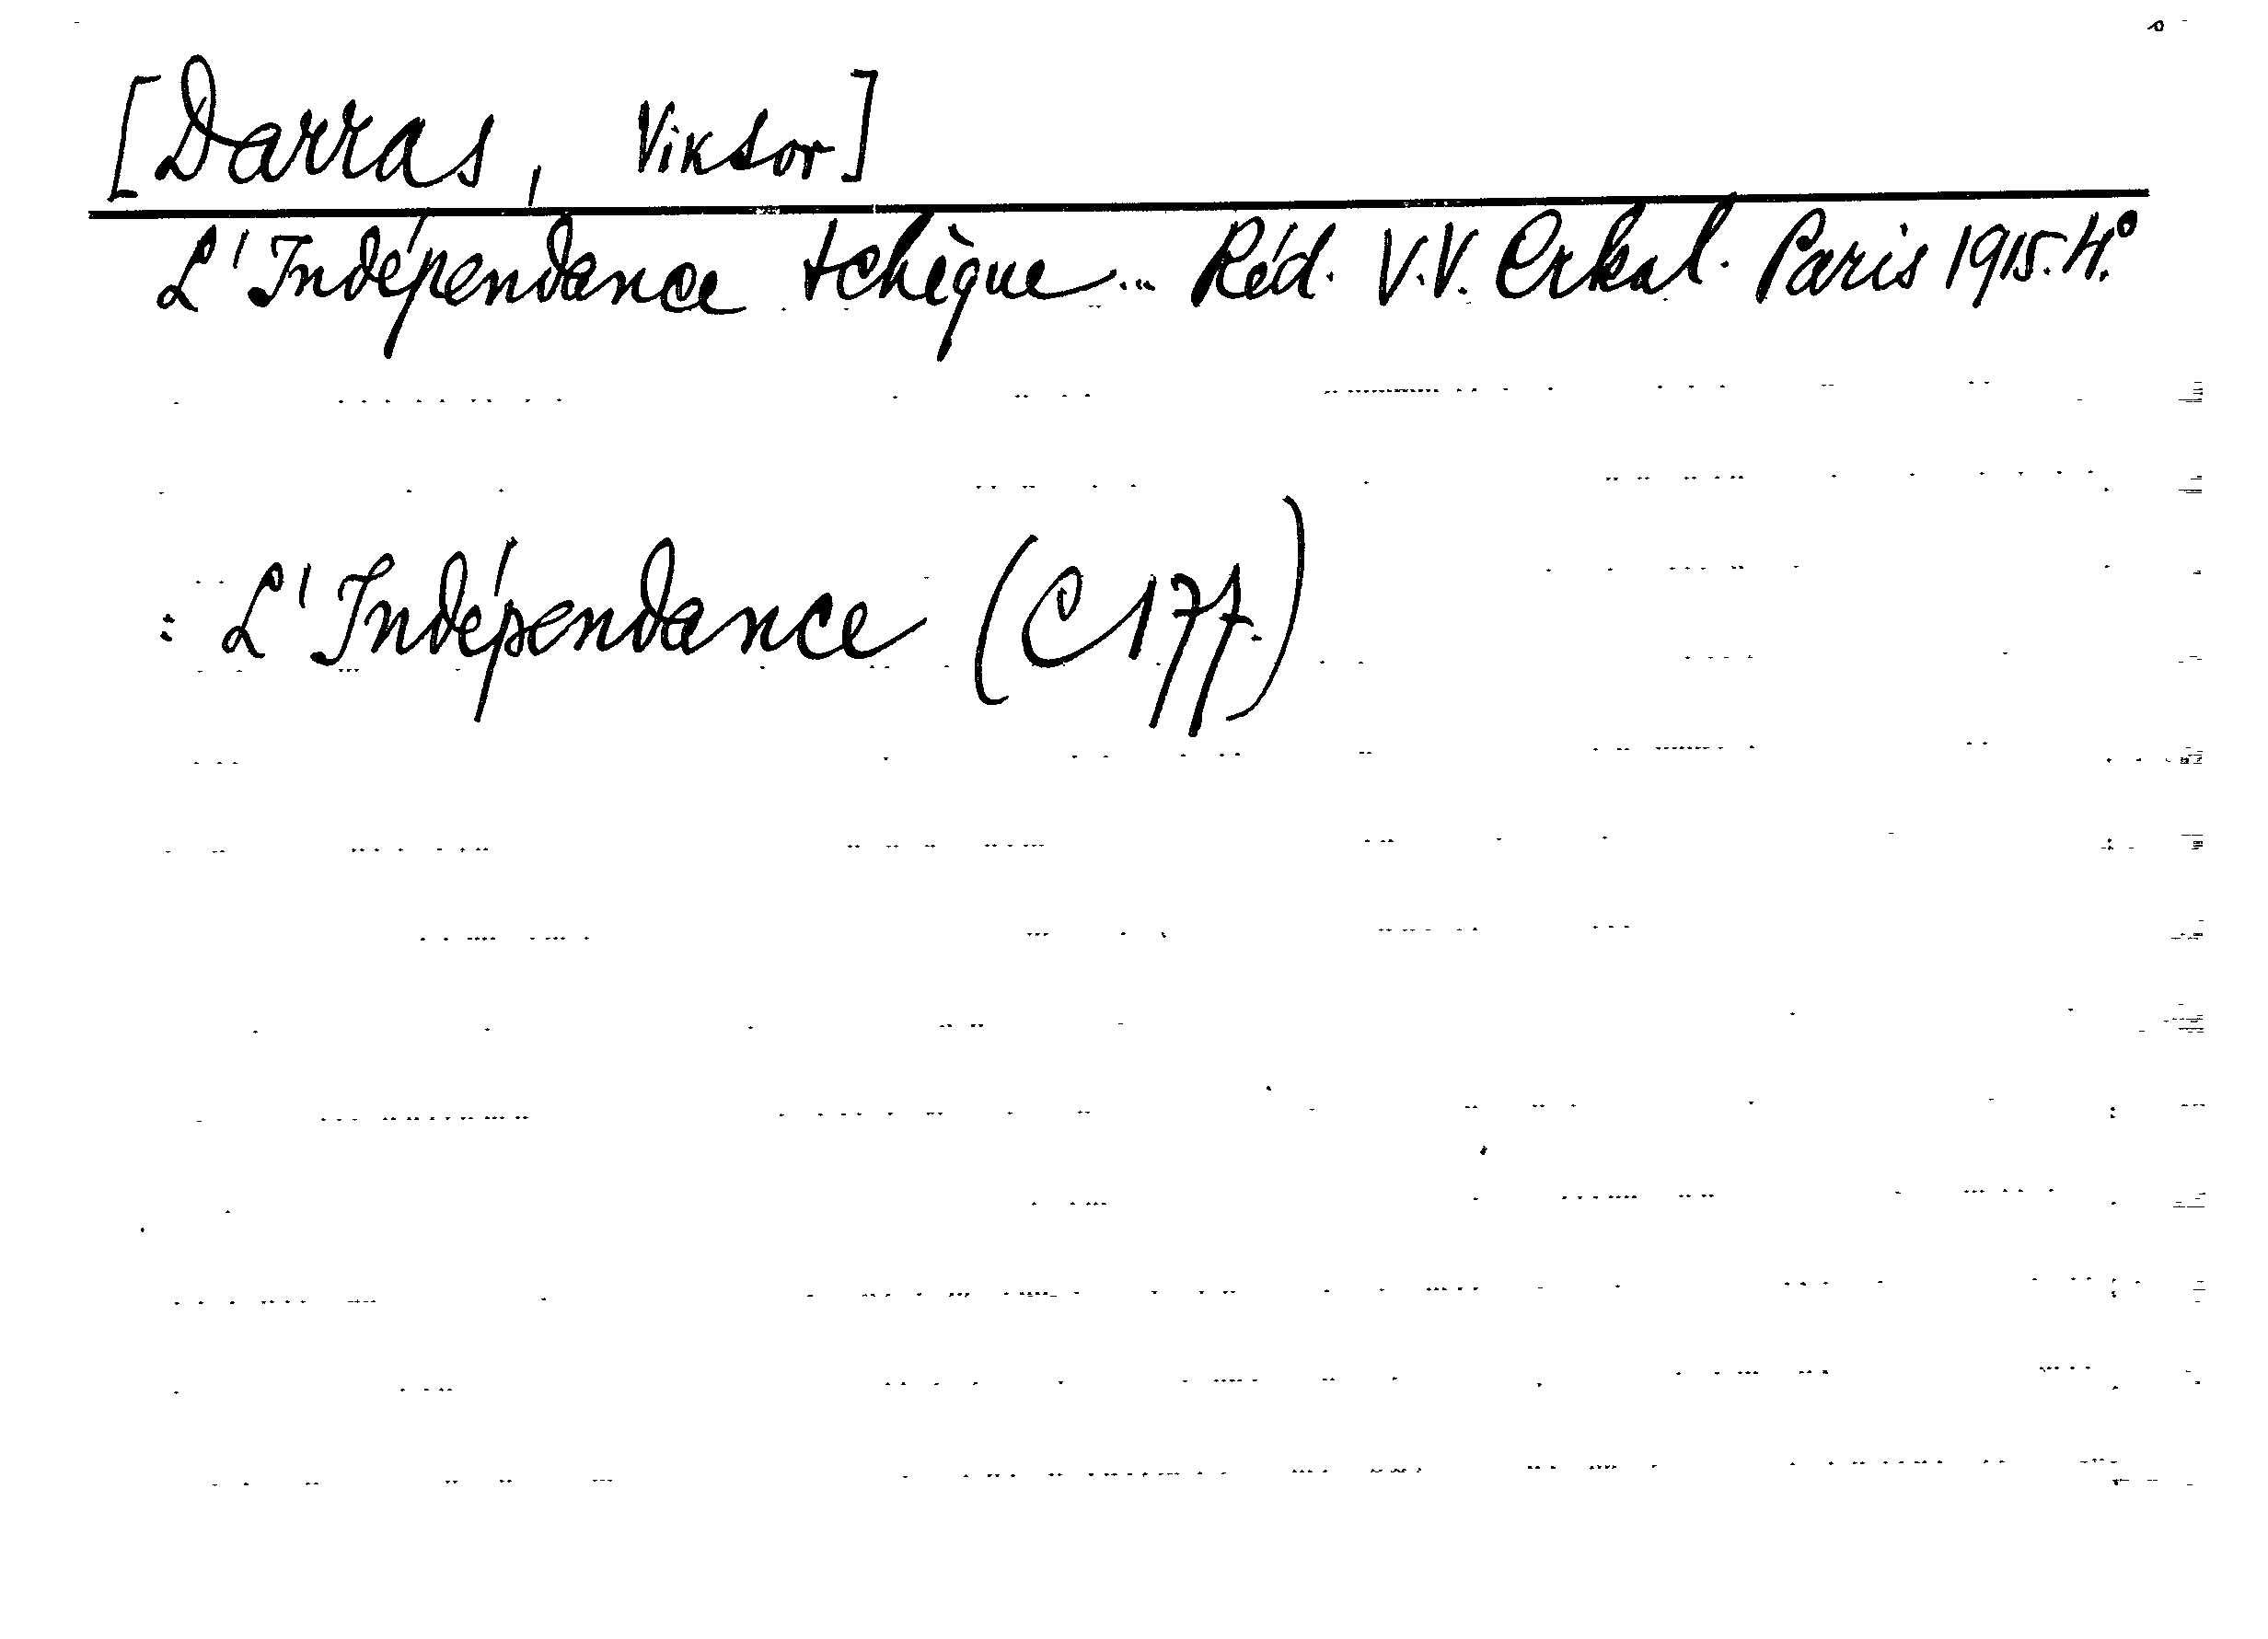 [Darras, Viktor]
L'Indépendance tchèque... Réd. V.V. Erkal. Paris 1915. 4.°
: L'Indépendance (C 177.)